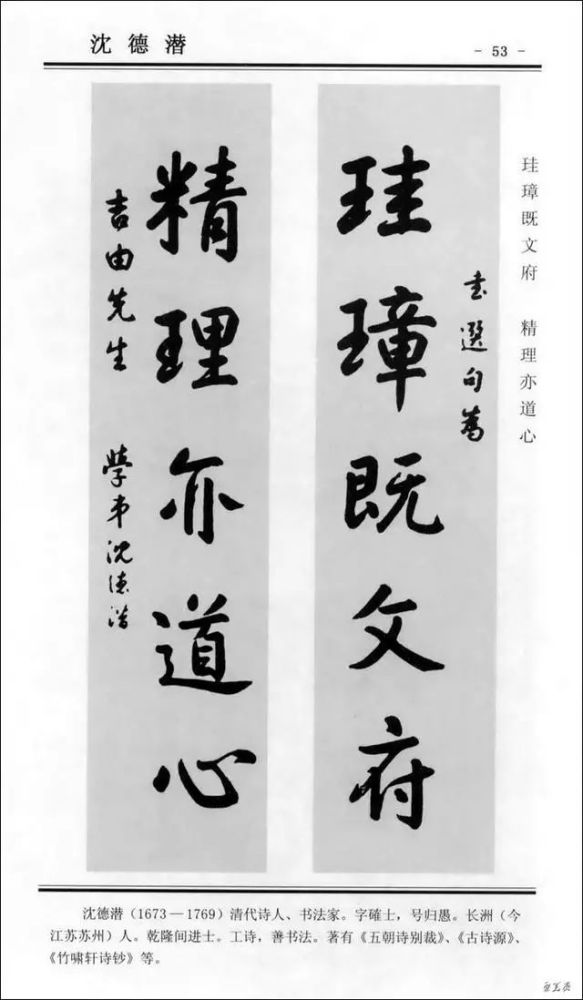 沈德潜
- 53 -
珪璋既文府 精理亦道心
书选句为
珪璋既文府
精理亦道心
吉由先生 學弟沈德潛
沈德潜（1673—1769）清代诗人、书法家。字確士，号归愚。长洲（今
江苏苏州）人。乾隆间进士。工诗，善书法。著有《五朝诗别裁》、《古诗源》、
《竹啸轩诗钞》等。